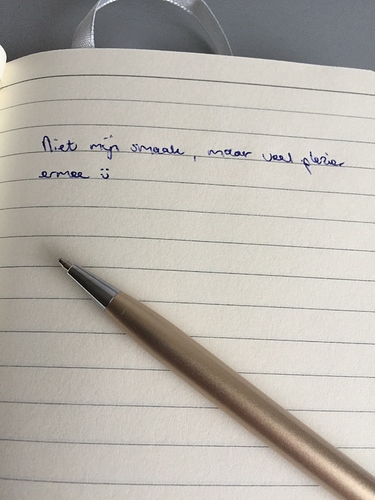 Niet mijn smaak, maar veel plezier
ermee ü